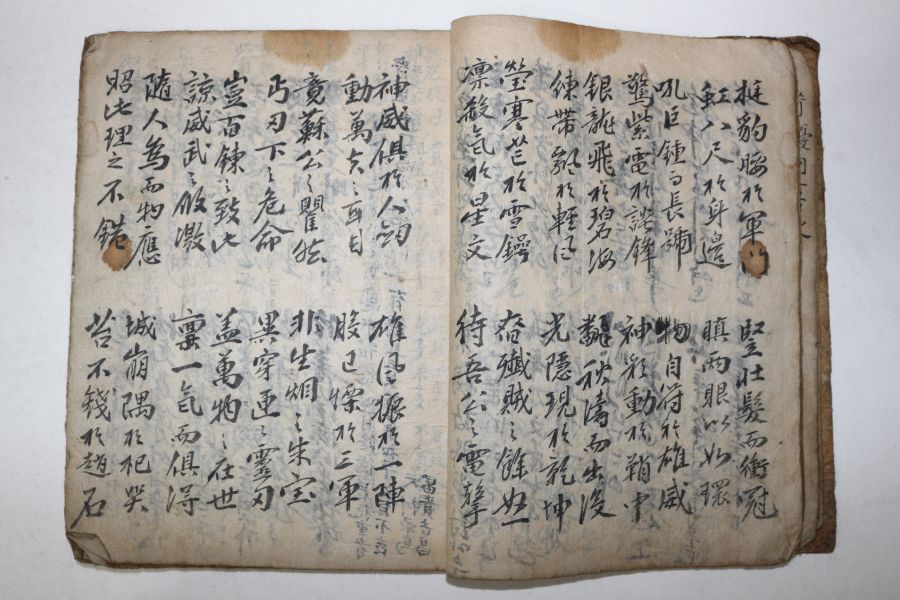 挺豹腰於軍 竪壯髮而衝冠
虹八尺於身邊 瞋兩眼以如環
吼巨鍾而長號 物自符於雄威
驚紫電於鋒 神彩動於鞘中
銀龍飛於碧海 翻秋濤而出沒
練帶飄於輕风 光隱現於乾坤
瑩寒芒於雪鍔 殲賊之餘
凜殺气於星文 待吾公之電擊
神威俱於人釰 雄風振於一陣
動萬夫之耳目 股已慄於三軍
竟蘇公之瞿然 非生烟之朱宝
丐刃下之危命 異穿連之靈刃
豈百鍊之致此 盖萬物之在世
諒威武之攸激 稟一气而俱得
隨人為而物應 城崩隅於杞哭
昭此理之不錯 苔不錢於趙石